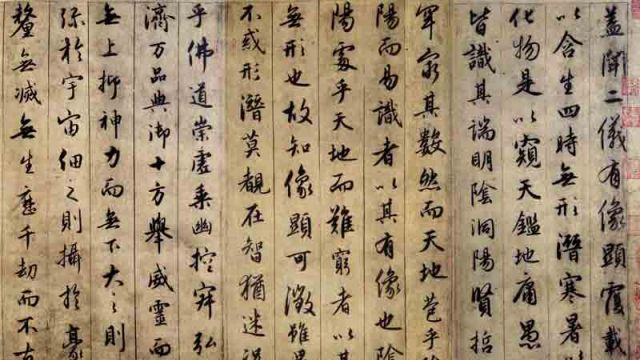 盖聞二儀有像顯覆載
以含生四時無形潛寒暑以
化物是以窺天鑑地庸愚
皆識其端明陰洞陽賢哲
罕窮其數然而天地苞乎
陽而易識者以其有像也陰
陽處乎天地而難窮者以其
無形也故知像顯可徵雖愚
不惑形潛莫覩在智猶迷況
乎佛道崇虛乘幽控寂弘
濟万品典御十方舉威靈而
無上抑神力而無下大之則
弥於宇宙細之則攝於豪
釐無滅無生歷千劫而不古